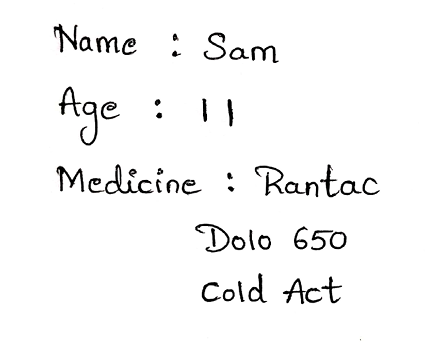 Name : Sam
Age : 11
Medicine : Rantac
Dolo 650
Cold Act